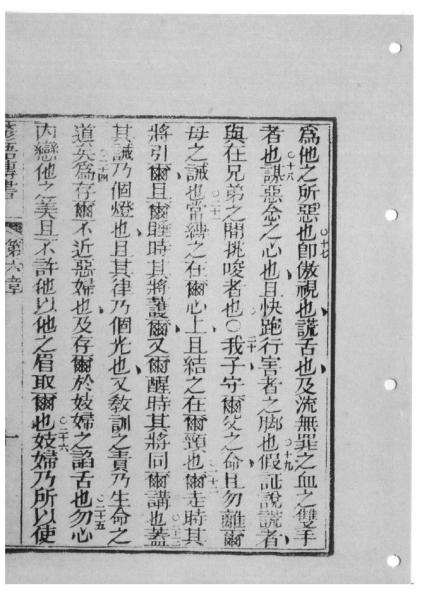 爲他之所惡也○十七卽傲視也謊舌也及流無罪之血之雙手
者也○十八謀惡念之心也且快跑行害者之脚也○十九假証說謊者
與在兄弟之間挑唆者也○○二十我子守爾父之命且勿離爾
母之誡也○二十一當縛之在爾心上且結之在爾頸也○二十二爾走時其
將引爾且爾睡時其將護爾又爾醒時其將同爾講也○二十三蓋
其誡乃個燈也且其律乃個光也又敎訓之責乃生命之
道矣○二十四爲存爾不近惡婦也及存爾於妓婦之謟舌也○二十五勿心
內戀他之美且不許他以他之眉取爾也○二十六妓婦乃所以使
第六章